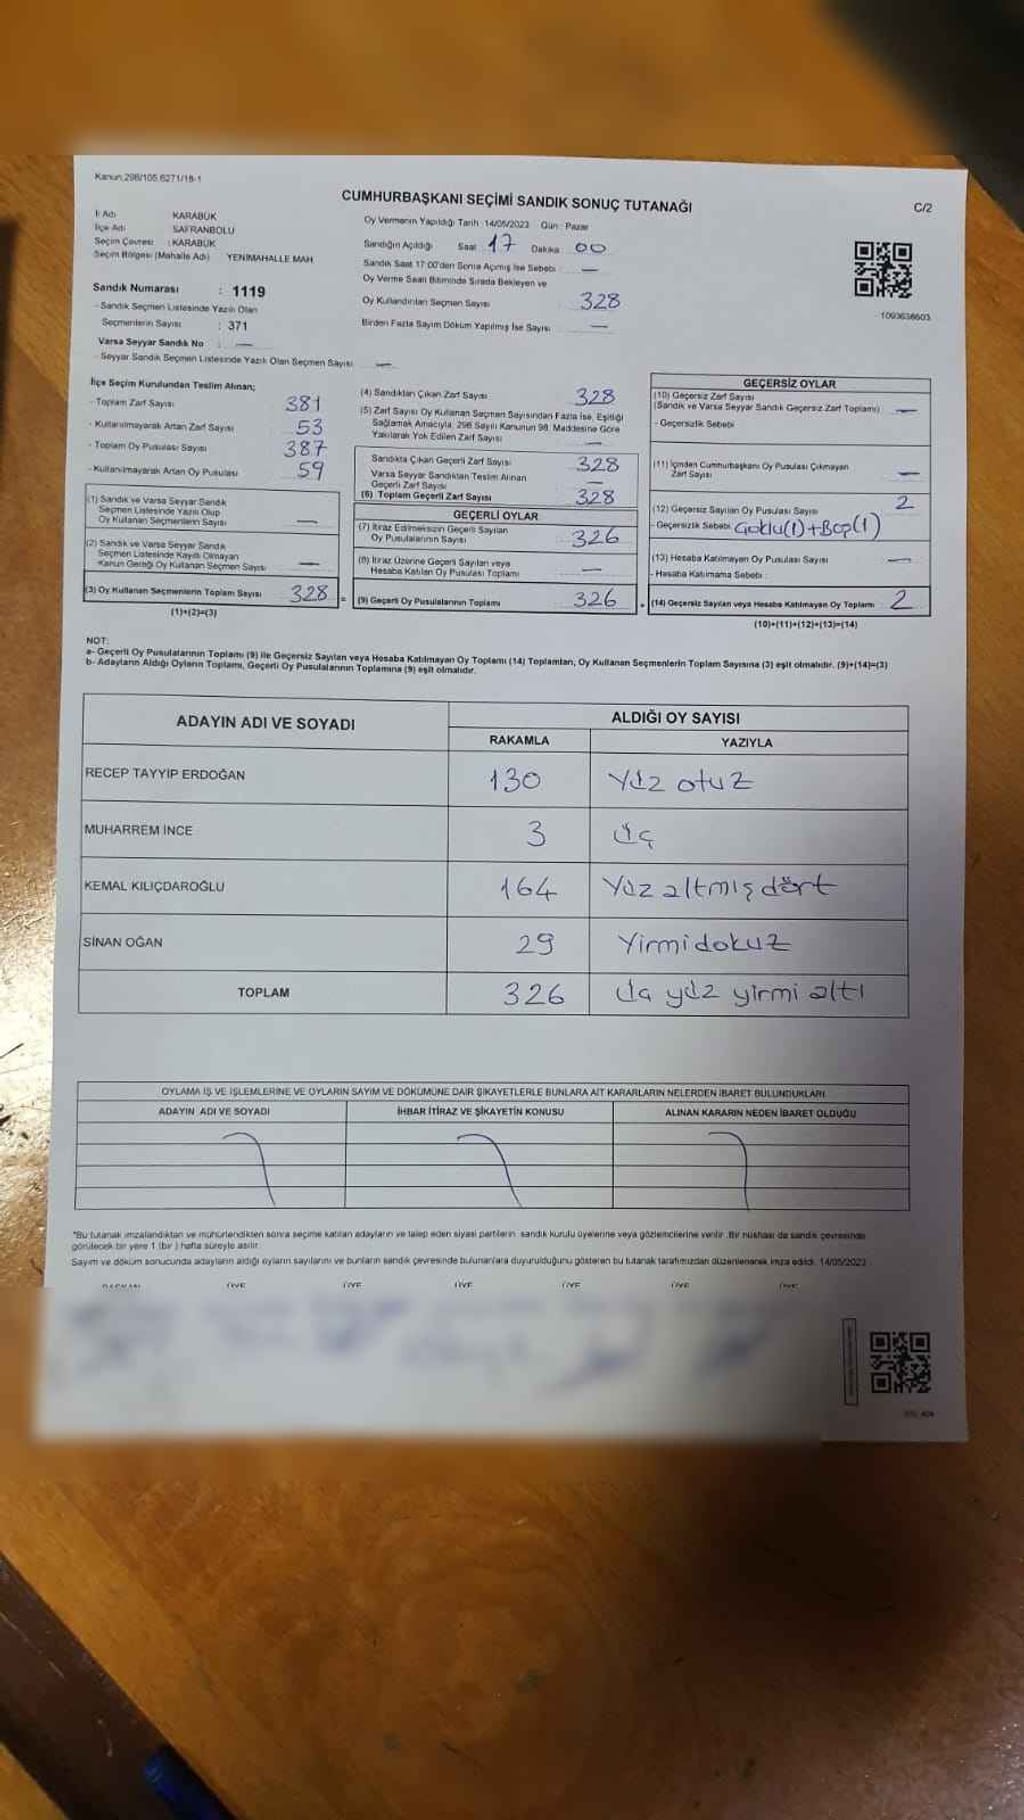 Kanun:298/105,6271/18-1
CUMHURBAŞKANI SEÇİMİ SANDIK SONUÇ TUTANAĞI
C/2
İl Adı KARABÜK
İlçe Adı SAFRANBOLU
Seçim Çevresi : KARABÜK
Seçim Bölgesi (Mahalle Adı) YENİMAHALLE MAH.
Sandık Numarası : 1119
- Sandık Seçmen Listesinde Yazılı Olan
Seçmenlerin Sayısı : 371
Varsa Seyyar Sandık No : —
- Seyyar Sandık Seçmen Listesinde Yazılı Olan Seçmen Sayısı —
Oy Vermenin Yapıldığı Tarih :14/05/2023 Gün : Pazar
Sandığın Açıldığı Saat 17 Dakika 00
Sandık Saat 17:00'den Sonra Açılmış İse Sebebi : —
Oy Verme Saati Bitiminde Sırada Bekleyen ve
Oy Kullandırılan Seçmen Sayısı 328
Birden Fazla Sayım Döküm Yapılmış İse Sayısı —
1093636603
İlçe Seçim Kurulundan Teslim Alınan;
- Toplam Zarf Sayısı 381
- Kullanılmayarak Artan Zarf Sayısı 53
- Toplam Oy Pusulası Sayısı 387
- Kullanılmayarak Artan Oy Pusulası 59
(1) Sandık ve Varsa Seyyar Sandık
Seçmen Listesinde Yazılı Olup
Oy Kullanan Seçmenlerin Sayısı —
(2) Sandık ve Varsa Seyyar Sandık
Seçmen Listesinde Kaydı Olmayan
Kanun Gereği Oy Kullanan Seçmen Sayısı —
(3) Oy Kullanan Seçmenlerin Toplam Sayısı 328 =
(1)+(2)=(3)
(4) Sandıktan Çıkan Zarf Sayısı 328
(5) Zarf Sayısı Oy Kullanan Seçmen Sayısından Fazla İse, Eşitliği
Sağlamak Amacıyla, 298 Sayılı Kanunun 98. Maddesine Göre
Yakılarak Yok Edilen Zarf Sayısı —
Sandıkta Çıkan Geçerli Zarf Sayısı 328
Varsa Seyyar Sandıktan Teslim Alınan
Geçerli Zarf Sayısı —
(6) Toplam Geçerli Zarf Sayısı 328
GEÇERLİ OYLAR
(7) İtiraz Edilmeksizin Geçerli Sayılan
Oy Pusulalarının Sayısı 326
(8) İtiraz Üzerine Geçerli Sayılan veya
Hesaba Katılan Oy Pusulası Toplamı —
(9) Geçerli Oy Pusulalarının Toplamı 326 +
GEÇERSİZ OYLAR
(10) Geçersiz Zarf Sayısı
(Sandık ve Varsa Seyyar Sandık Geçersiz Zarf Toplamı) —
- Geçersizlik Sebebi
(11) İçinden Cumhurbaşkanı Oy Pusulası Çıkmayan
Zarf Sayısı —
(12) Geçersiz Sayılan Oy Pusulası Sayısı 2
- Geçersizlik Sebebi
(13) Hesaba Katılmayan Oy Pusulası Sayısı —
- Hesaba Katılmama Sebebi :
(14) Geçersiz Sayılan veya Hesaba Katılmayan Oy Toplamı 2
(10)+(11)+(12)+(13)=(14)
NOT:
a- Geçerli Oy Pusulalarının Toplamı (9) ile Geçersiz Sayılan veya Hesaba Katılmayan Oy Toplamı (14) Toplamları, Oy Kullanan Seçmenlerin Toplam Sayısına (3) eşit olmalıdır. (9)+(14)=(3)
b- Adayların Aldığı Oyların Toplamı, Geçerli Oy Pusulalarının Toplamına (9) eşit olmalıdır.
ADAYIN ADI VE SOYADI
ALDIĞI OY SAYISI
RAKAMLA YAZIYLA
RECEP TAYYİP ERDOĞAN 130 Yüz otuz
MUHARREM İNCE 3 Üç
KEMAL KILIÇDAROĞLU 164 Yüz altmış dört
SİNAN OĞAN 29 Yirmi dokuz
TOPLAM 326 Üç yüz yirmi altı
OYLAMA İŞ VE İŞLEMLERİNE VE OYLARIN SAYIM VE DÖKÜMÜNE DAİR ŞİKAYETLERLE BUNLARA AİT KARARLARIN NELERDEN İBARET BULUNDUKLARI
ADAYIN ADI VE SOYADI İHBAR İTİRAZ VE ŞİKAYETİN KONUSU ALINAN KARARIN NEDEN İBARET OLDUĞU
*Bu tutanak imzalandıktan ve mühürlendikten sonra seçime katılan adayların ve talep eden siyasi partilerin sandık kurulu üyelerine veya gözlemcilerine verilir. Bir nüshası da sandık çevresinde
görülecek bir yere 1 (bir ) hafta süreyle asılır.
Sayım ve döküm sonucunda adayların aldığı oyların sayılarını ve bunların sandık çevresinde bulunanlara duyurulduğunu gösteren bu tutanak tarafımızdan düzenlenerek imza edildi. 14/05/2023
BAŞKAN ÜYE ÜYE ÜYE ÜYE ÜYE ÜYE